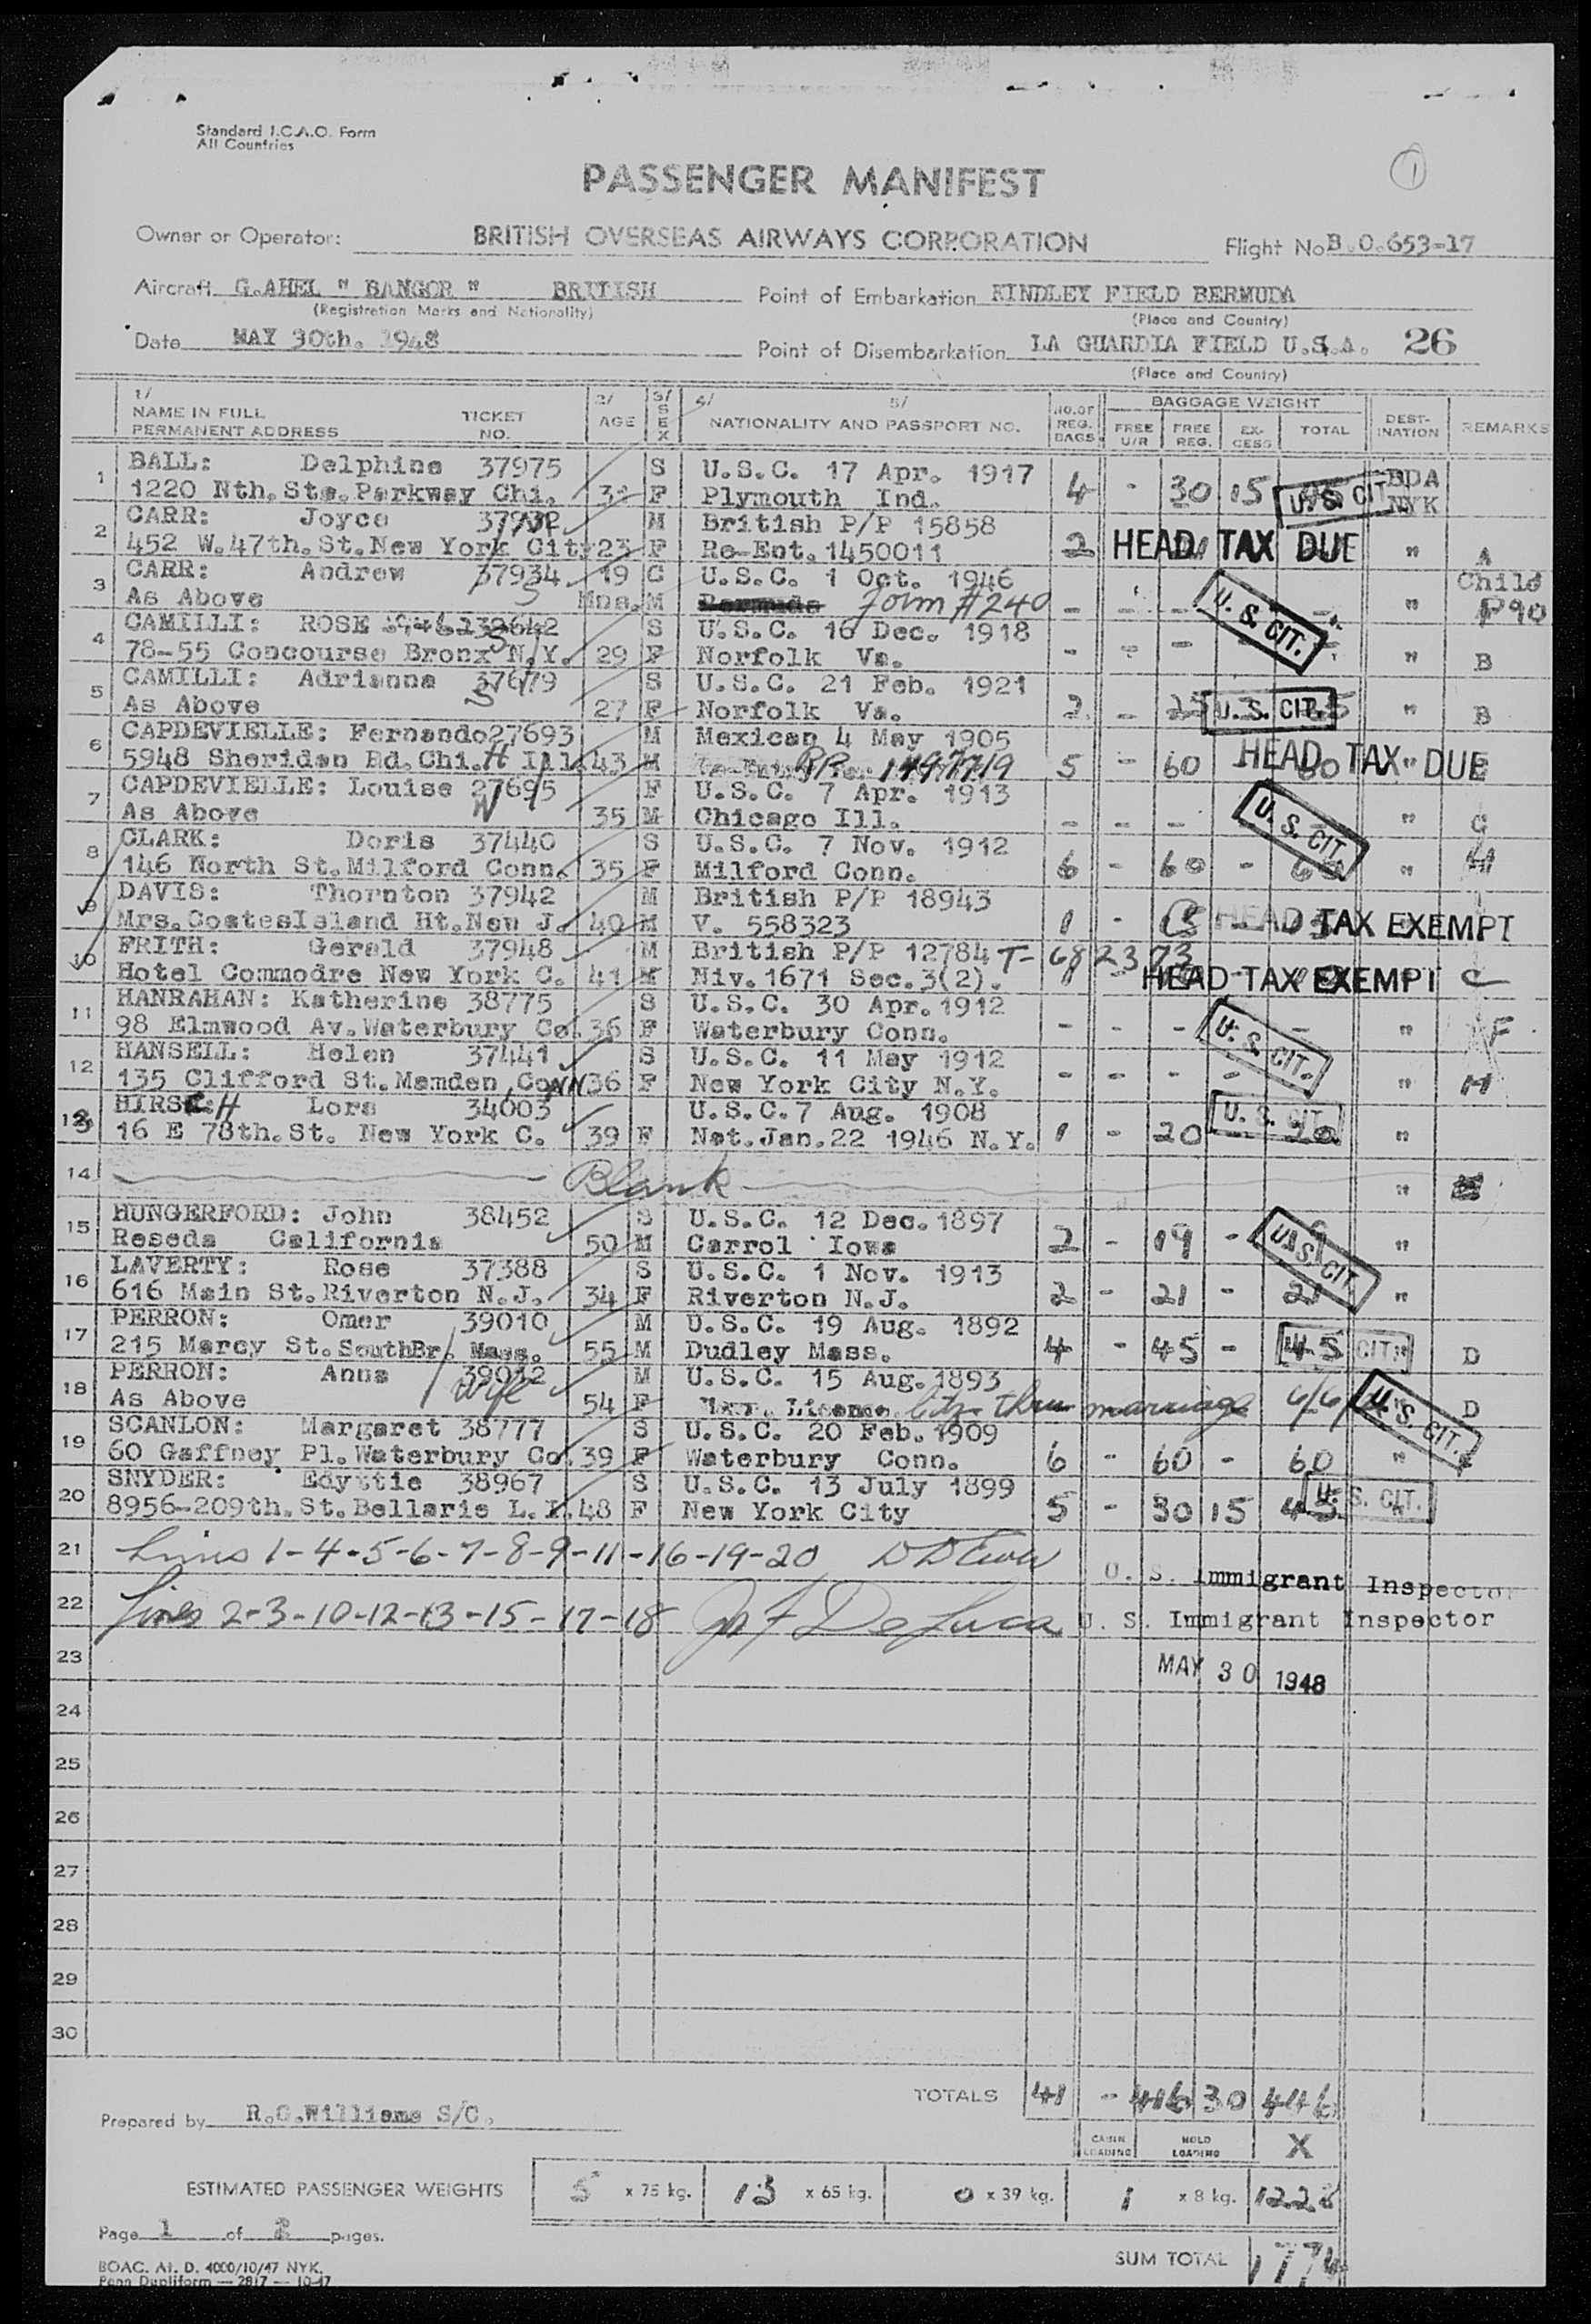 Standard I.C.A.O. Form
All Countries
PASSENGER MANIFEST
1
Owner or Operator: BRITISH OVERSEAS AIRWAYS CORPORATION Flight No B.O.653-17
Aircraft G.AHEL " BANGOR " BRITISH Point of Embarkation KINDLEY FIELD BERMUDA
(Registration Marks and Nationality) (Place and Country)
Date MAY 30th. 1948 Point of Disembarkation LA GUARDIA FIELD U.S.A. 26
(Place and Country)
1/ NAME IN FULL PERMANENT ADDRESS TICKET NO. 2/ AGE 3/ SEX 4/ 5/ NATIONALITY AND PASSPORT NO. NO.OF REG. BAGS. BAGGAGE WEIGHT FREE U/R FREE REG. EX-CESS TOTAL DEST-INATION REMARKS
1 BALL: Delphine 37975 S U.S.C. 17 Apr. 1917 BDA
1220 Nth. Sta. Parkway Chi. F Plymouth Ind. 4 - 30 15 U.S. CIT. NYK
2 CARR: Joyce M British P/P 15858
452 W.47th.St.New York City 23 F Re-Ent.1450011 2 HEAD TAX DUE " A
3 CARR: Andrew 37934 19 C U.S.C. 1 Oct. 1946 Child
As Above Mns. M Bermuda Form #240 - - - U.S. CIT. - " P90
4 CAMILLI: ROSE S U.S.C. 16 Dec. 1918
78-55 Concourse Bronx N.Y. 29 F Norfolk Va. - - - " B
5 CAMILLI: Adrianna 37679 S U.S.C. 21 Feb. 1921
As Above 27 F Norfolk Va. 2 - 25 U.S. CIT. " B
6 CAPDEVIELLE: Fernando 27693 M Mexican 4 May 1905
5948 Sheridan Rd.Chi. H Ill. 43 M RP 1497719 5 - 60 HEAD TAX DUE "
7 CAPDEVIELLE: Louise 27695 F U.S.C. 7 Apr. 1913
As Above W 35 M Chicago Ill. - - - U.S. CIT. " C
8 CLARK: Doris 37440 S U.S.C. 7 Nov. 1912
146 North St.Milford Conn. 35 F Milford Conn. 6 - 60 - 60 " H
9 DAVIS: Thornton 37942 M British P/P 18943
Mrs.CoatesIsland Ht.New J. 40 M V. 558323 1 - HEAD TAX EXEMPT
10 FRITH: Gerald 37948 M British P/P 12784 T-682373
Hotel Commodre New York C. 41 M Niv.1671 Sec.3(2). HEAD TAX EXEMPT C
11 HANRAHAN: Katherine 38775 S U.S.C. 30 Apr.1912
98 Elmwood Av.Waterbury Co. 36 F Waterbury Conn. - - - U.S. CIT. - " F
12 HANSELL: Helen 37441 S U.S.C. 11 May 1912
135 Clifford St.Hamden CONN 36 F New York City N.Y. - - - - " H
13 HIRSCH Lora 34003 U.S.C.7 Aug. 1908
16 E 78th.St. New York C. 39 F Nat.Jan.22 1946 N.Y. 1 - 20 U.S. CIT. 20 "
14 Blank "
15 HUNGERFORD: John 38452 S U.S.C. 12 Dec.1897
Reseda California 50 M Carrol Iowa 2 - 19 - U.S. CIT. "
16 LAVERTY: Rose 37388 S U.S.C. 1 Nov. 1913
616 Main St.Riverton N.J. 34 F Riverton N.J. 2 - 21 - 21 "
17 PERRON: Omer 39010 M U.S.C. 19 Aug. 1892
215 Marcy St.SouthBr. Mass. 55 M Dudley Mass. 4 - 45 - 45 CIT. " D
18 PERRON: Anna 39012 M U.S.C. 15 Aug.1893
As Above wife 54 F Marr. License. Citz thru marriage U.S. CIT. D
19 SCANLON: Margaret 38777 S U.S.C. 20 Feb.1909
60 Gaffney Pl.Waterbury Co. 39 F Waterbury Conn. 6 - 60 - 60 "
20 SNYDER: Edyttie 38967 S U.S.C. 13 July 1899
8956-209th.St.Bellaris L.I. 48 F New York City 5 - 30 15 45 U.S. CIT. "
21 Lines 1-4-5-6-7-8-9-11-16-19-20 U. S. Immigrant Inspector
22 Lines 2-3-10-12-13-15-17-18 De Luca U. S. Immigrant Inspector
23 MAY 30 1948
24
25
26
27
28
29
30
TOTALS 41 - 416 30 446
Prepared by R.G.Williams S/C.
CABIN LOADING HOLD LOADING X
ESTIMATED PASSENGER WEIGHTS 5 x 75 kg. 13 x 65 kg. 0 x 39 kg. 1 x 8 kg. 1228
Page 1 of 2 pages.
SUM TOTAL 1774
BOAC. At. D. 4000/10/47 NYK.
Penn Dupliform — 2817 — 10-47